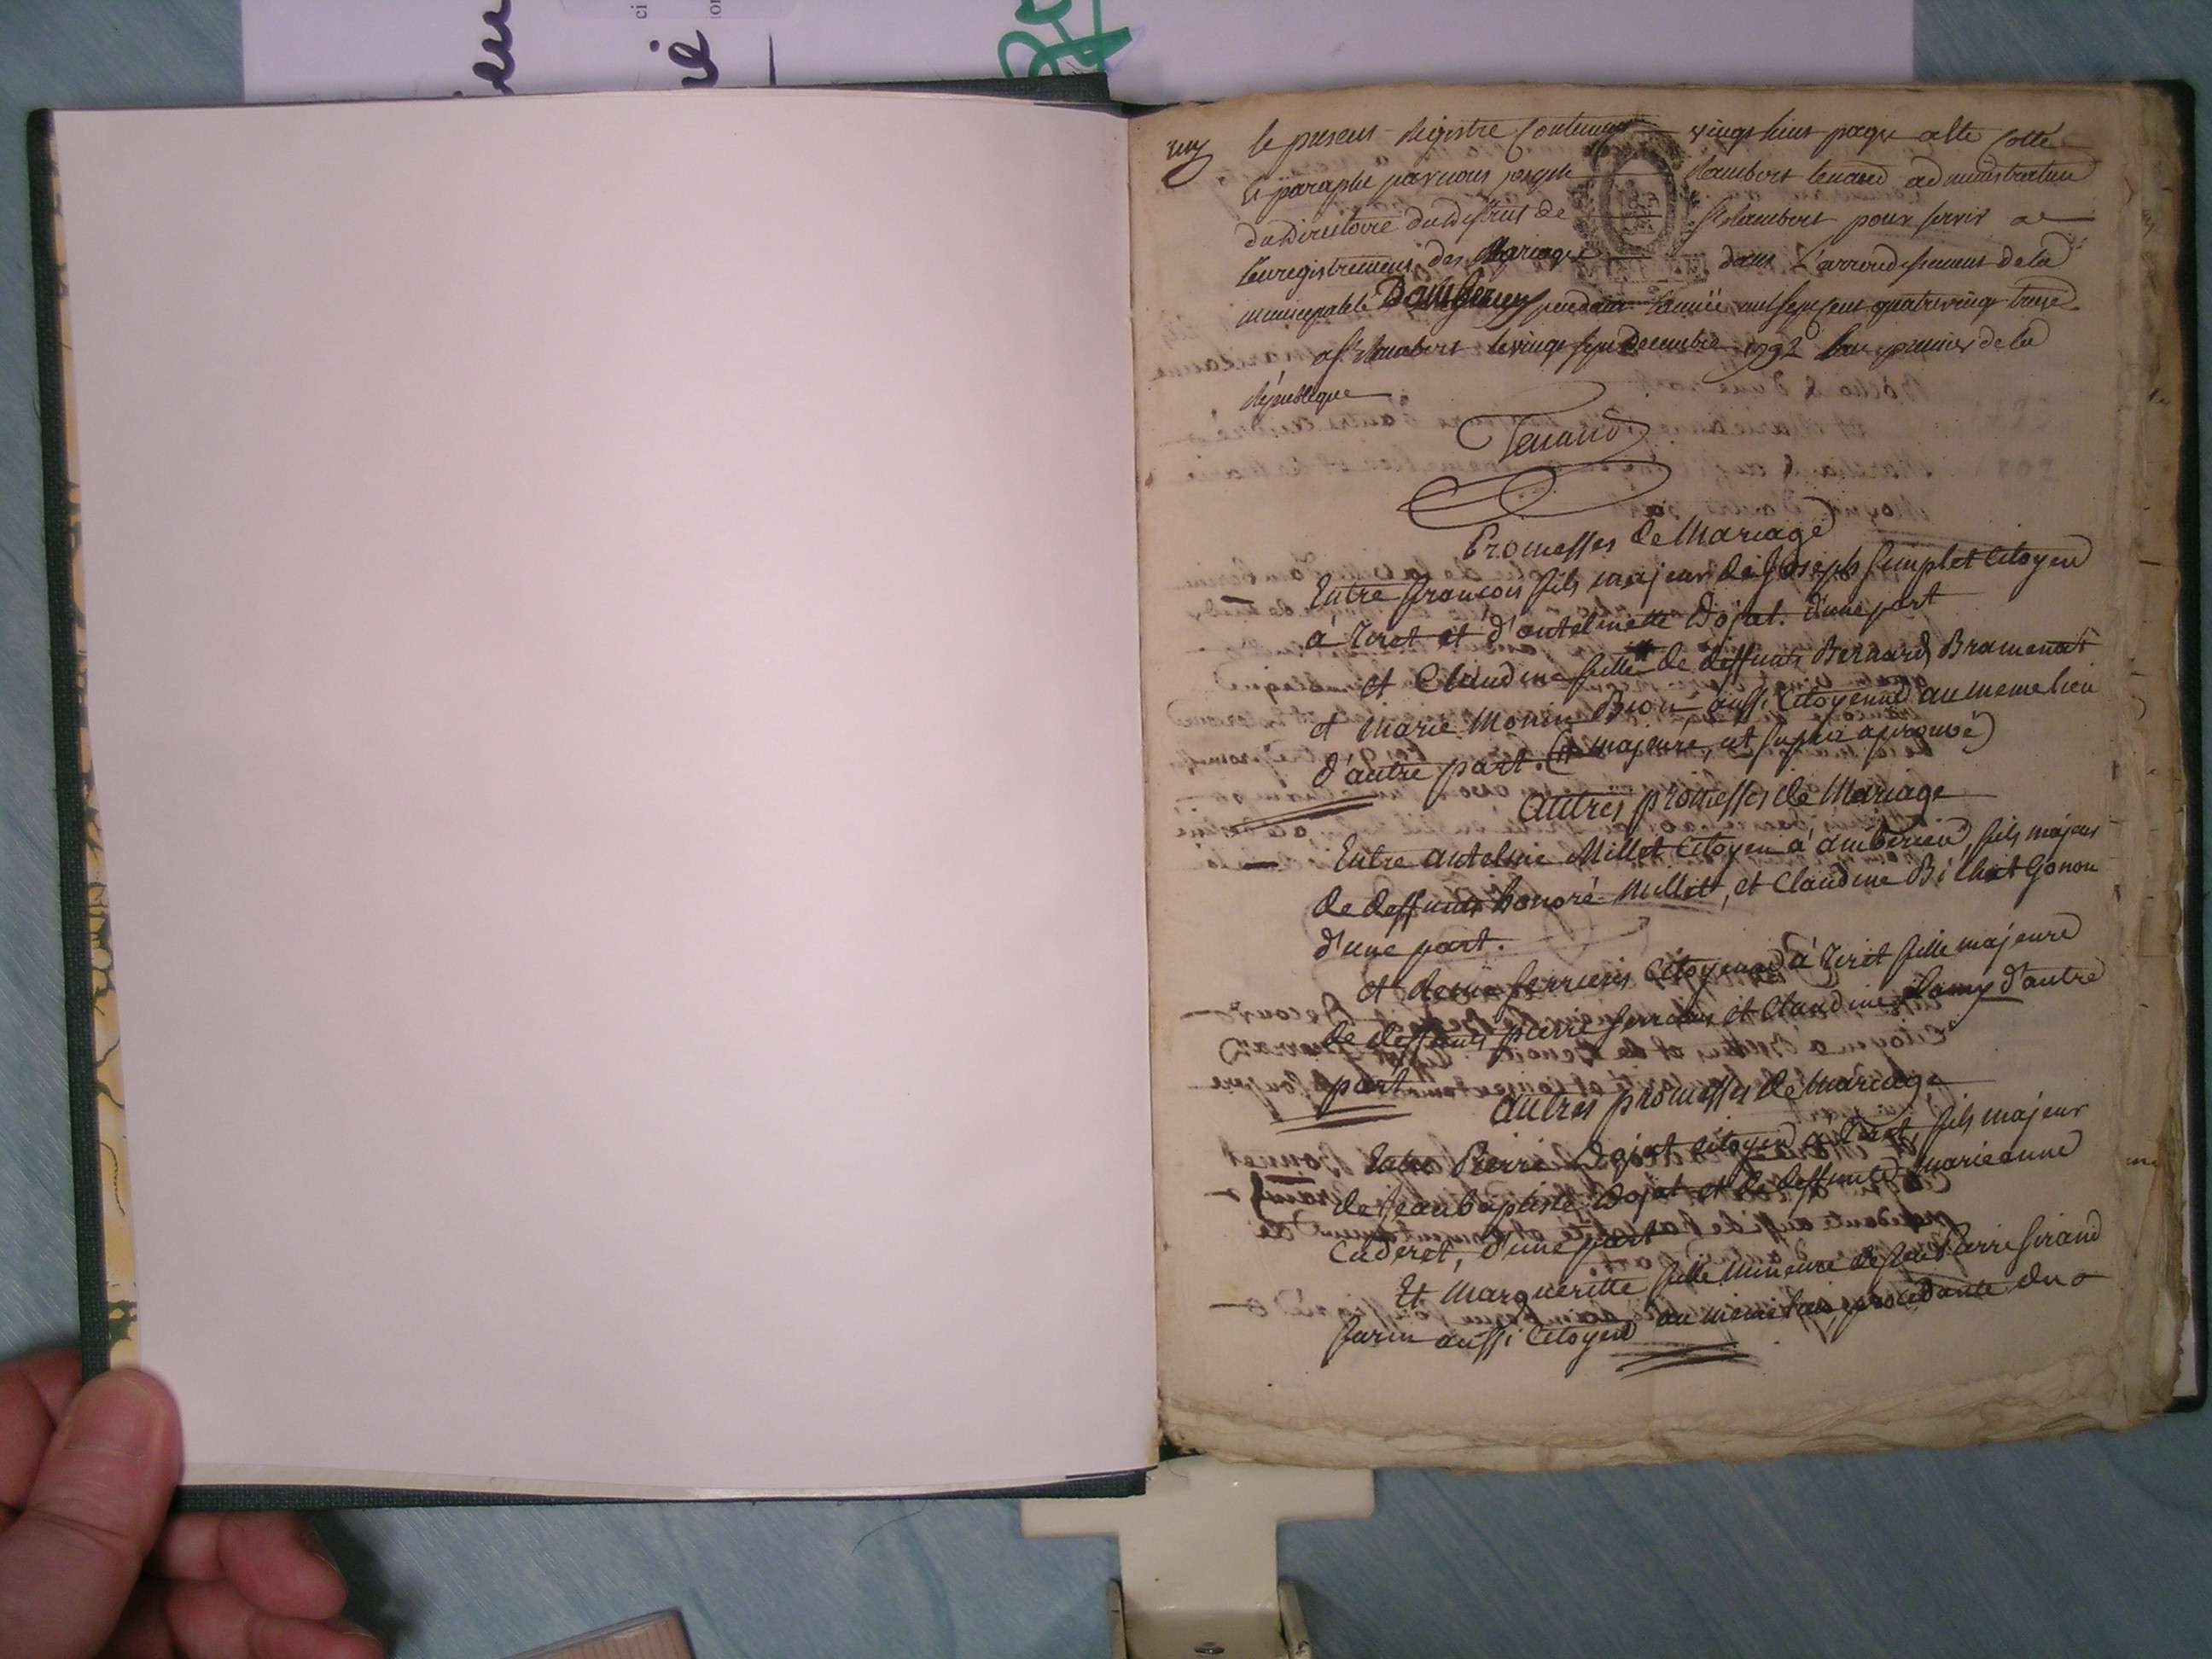 le present Registre Contenant vingt huit page a été Cotté
et paraphé par nous joseph Rambert tenand administrateur
du Directoire du District de St Rambert pour servir a
lenregistrement des Mariages dans L'arrondissement de la
municipalité Damberieu pendant l'année mil sept cent quatre vingt treize
a St Rambert le vingt sept Decembre 1792 l'an premier de la
République
Tenand
Promesses de Mariage
Entre françois fils majeur de Joseph Simplet Citoyen
à Tiret et d'antelmette Dojat. d'une part
et Claudine fille de deffunts Bernard Bramenat
et Marie Monin Brou aussi Citoyenne au meme lieu
d'autre part. (et majeure, est surajé aprouvé)
autres promesses de Mariage
Entre antelme Millet Citoyen à amberieu, fils majeur
de deffunts honoré Millet, et Claudine Bichat Gonon
d'une part.
et Ferrieis Citoyenne à Tiret fille majeure
de deffunts pierre et Claudine Lamy d'autre
part
autres promesses de mariage
Entre Pierre Dojat citoyen à Tiret, fils majeur
de Jean baptiste Dojat et de deffunte marieanne
Cuderet, d'une part
Et Marguerite fille mineure de feu Pierre Girand
Jurin aussi Citoyen au meme lieu, procedante du